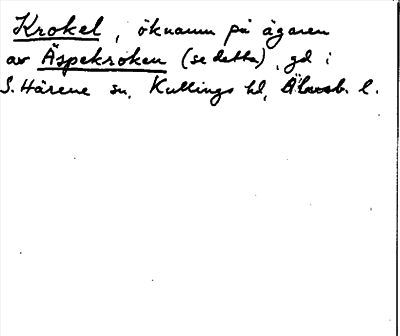 Krokel, öknamn på ägaren
av Äspekroken (se detta), gd i
S. Härene sn, Kullings hd, Älvsb. l.